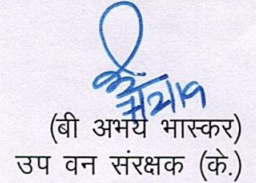 7/2/19
(बी अभय भास्कर)
उप वन संरक्षक (के.)